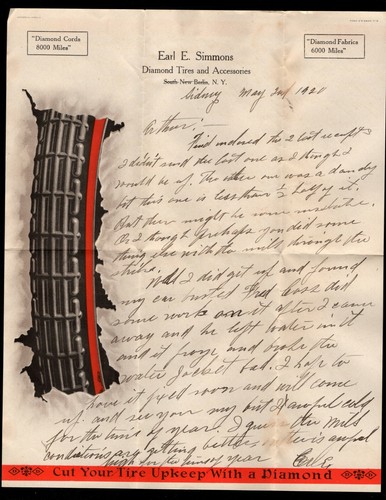 "Diamond Cords
8000 Miles"
"Diamond Fabrics
6000 Miles"
Earl E. Simmons
Diamond Tires and Accessories
South New Berlin, N. Y.
Sidney May 2nd 1920
Arthur:-
Find enclosed the 2 last receipts
I didn't send the last one as I thought I
would be up. The other one was a dandy
but this one is less than 1/2 half of it.
But there might be some mistake.
Or I though perhaps you did some
thing else with the milk through the
strike.
Well I did git up and found
my car busted Fred Goss did
some work on it after I came
away and he left water in it
and it froze and broke the
water Jacket bad. I hope to
have it fixed soon and will come
up and see you my but it awful cold
for the time of year. I guess the milk
conditions are getting better is awful
high for the time of year
E.E.S.
Cut Your Tire Upkeep With a Diamond